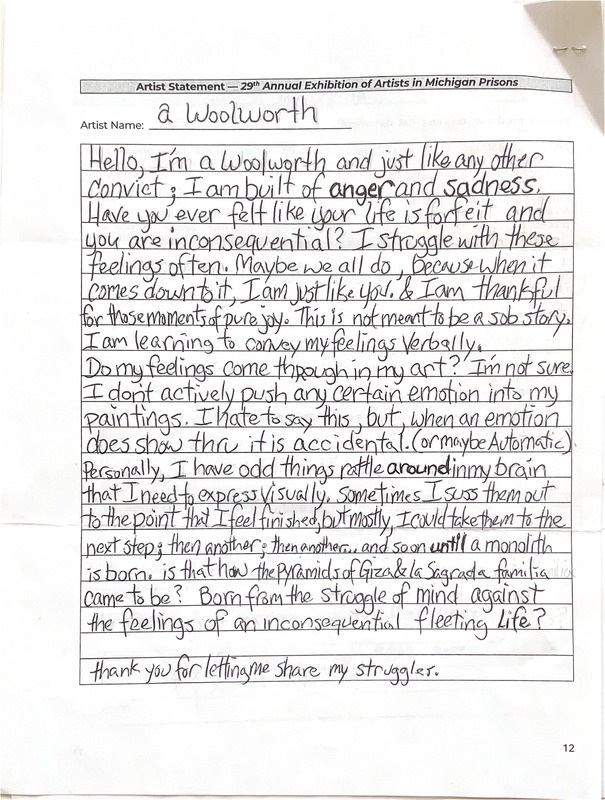 Artist Statement — 29th Annual Exhibition of Artists in Michigan Prisons
Artist Name: a Woolworth
Hello, I'm a Woolworth and just like any other
convict; I am built of anger and sadness.
Have you ever felt like your life is forfeit and
you are inconsequential? I struggle with these
feelings often. Maybe we all do, because when it
comes down to it, I am just like you. & I am thankful
for those moments of pure joy. This is not meant to be a sob story.
I am learning to convey my feelings verbally.
Do my feelings come through in my art? I'm not sure.
I don't actively push any certain emotion into my
paintings. I hate to say this, but, when an emotion
does show thru it is accidental. (or maybe Automatic).
Personally, I have odd things rattle around in my brain
that I need to express visually. Sometimes I suss them out
to the point that I feel finished, but mostly, I could take them to the
next step; then another; then another... and so on until a monolith
is born. is that how the Pyramids of Giza & la Sagrada familia
came to be? Born from the struggle of mind against
the feelings of an inconsequential fleeting Life?
thank you for letting me share my struggles.
12